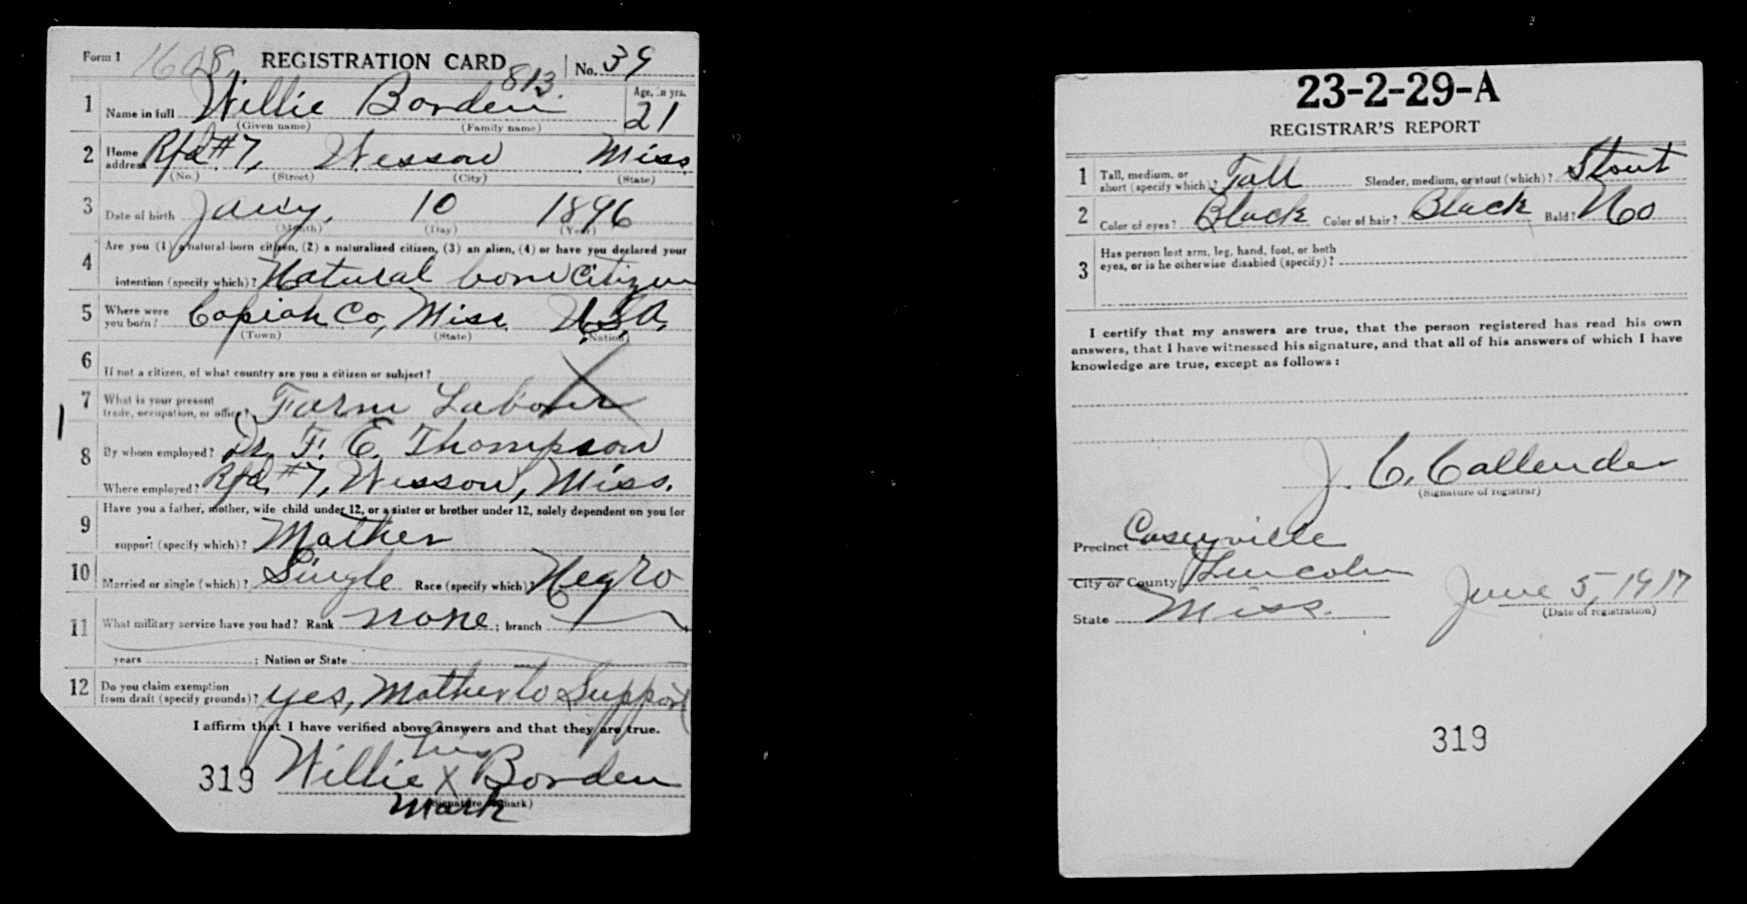 Form 1 1608 REGISTRATION CARD No. 39
813.
1 Name in full Willie Borden Age, in yrs. 21
(Given name) (Family name)
2 Home address Rfd #7, Wesson Miss
(No.) (Street) (City) (State)
3 Date of birth Jany, 10 1896
(Month) (Day) (Year)
4 Are you (1) a natural-born citizen, (2) a naturalized citizen, (3) an alien, (4) or have you declared your
intention (specify which)? Natural born Citizen
5 Where were you born? Copiah Co, Miss U.S.A.
(Town) (State) (Nation)
6 If not a citizen, of what country are you a citizen or subject?
7 What is your present trade, occupation, or office? Farm Labor
8 By whom employed? Dr. F. E. Thompson
Where employed? Rfd. #7, Wesson, Miss.
9 Have you a father, mother, wife child under 12, or a sister or brother under 12, solely dependent on you for
support (specify which)? Mother
10 Married or single (which)? Single Race (specify which)? Negro
11 What military service have you had? Rank none ; branch
years ; Nation or State
12 Do you claim exemption from draft (specify grounds)? yes, Mother to Support
I affirm that I have verified above answers and that they are true.
his
319 Willie X Borden
(Signature or mark)
mark
23-2-29-A
REGISTRAR'S REPORT
1 Tall, medium, or short (specify which)? Tall Slender, medium, or stout (which)? Stout
2 Color of eyes? Black Color of hair? Black Bald? No
3 Has person lost arm, leg, hand, foot, or both
eyes, or is he otherwise disabled (specify)?
I certify that my answers are true, that the person registered has read his own
answers, that I have witnessed his signature, and that all of his answers of which I have
knowledge are true, except as follows:
J. C. Callender
(Signature of registrar)
Precinct Caseyville
City or County Lincoln
State Miss. June 5, 1917
(Date of registration)
319